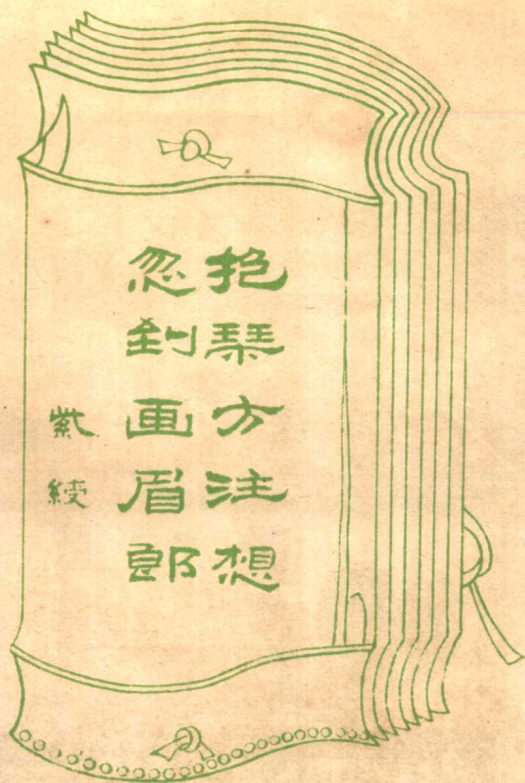 抱琹方注想
忽到画眉郎
紫绶